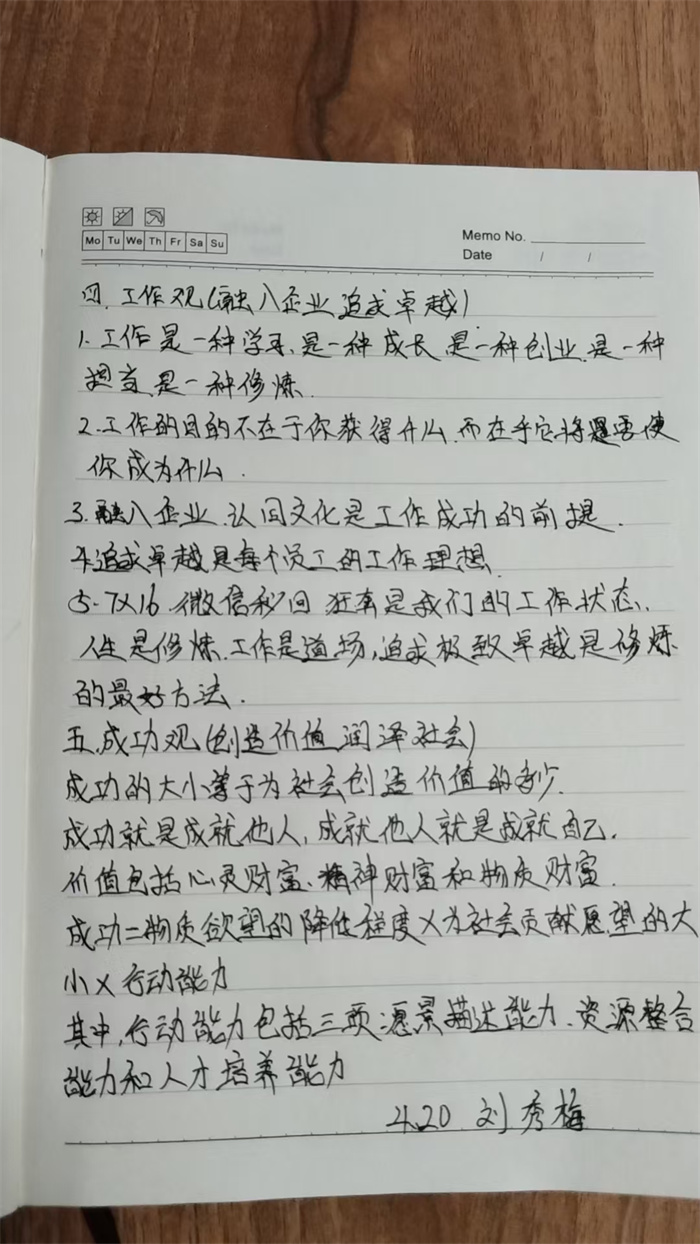 Mo Tu We Th Fr Sa Su
Memo No.
Date / /
四.工作观(融入企业 追求卓越)
1.工作是一种学习、是一种成长、是一种创业、是一种
担当、是一种修炼.
2.工作的目的不在于你获得什么.而在乎它将是否使
你成为什么.
3.融入企业.认同文化是工作成功的前提.
4.追求卓越是每个员工的工作理想.
5.7X16.微信秒回 狂奔是我们的工作状态.
人生是修炼.工作是道场,追求极致卓越是修炼
的最好方法.
五.成功观(创造价值 润泽社会)
成功的大小等于为社会创造价值的多少.
成功就是成就他人,成就他人就是成就自己.
价值包括心灵财富、精神财富和物质财富.
成功=物质欲望的降低程度X为社会贡献愿望的大
小X行动能力
其中,行动能力包括三项:愿景描述能力、资源整合
能力和人才培养能力
4.20 刘秀梅